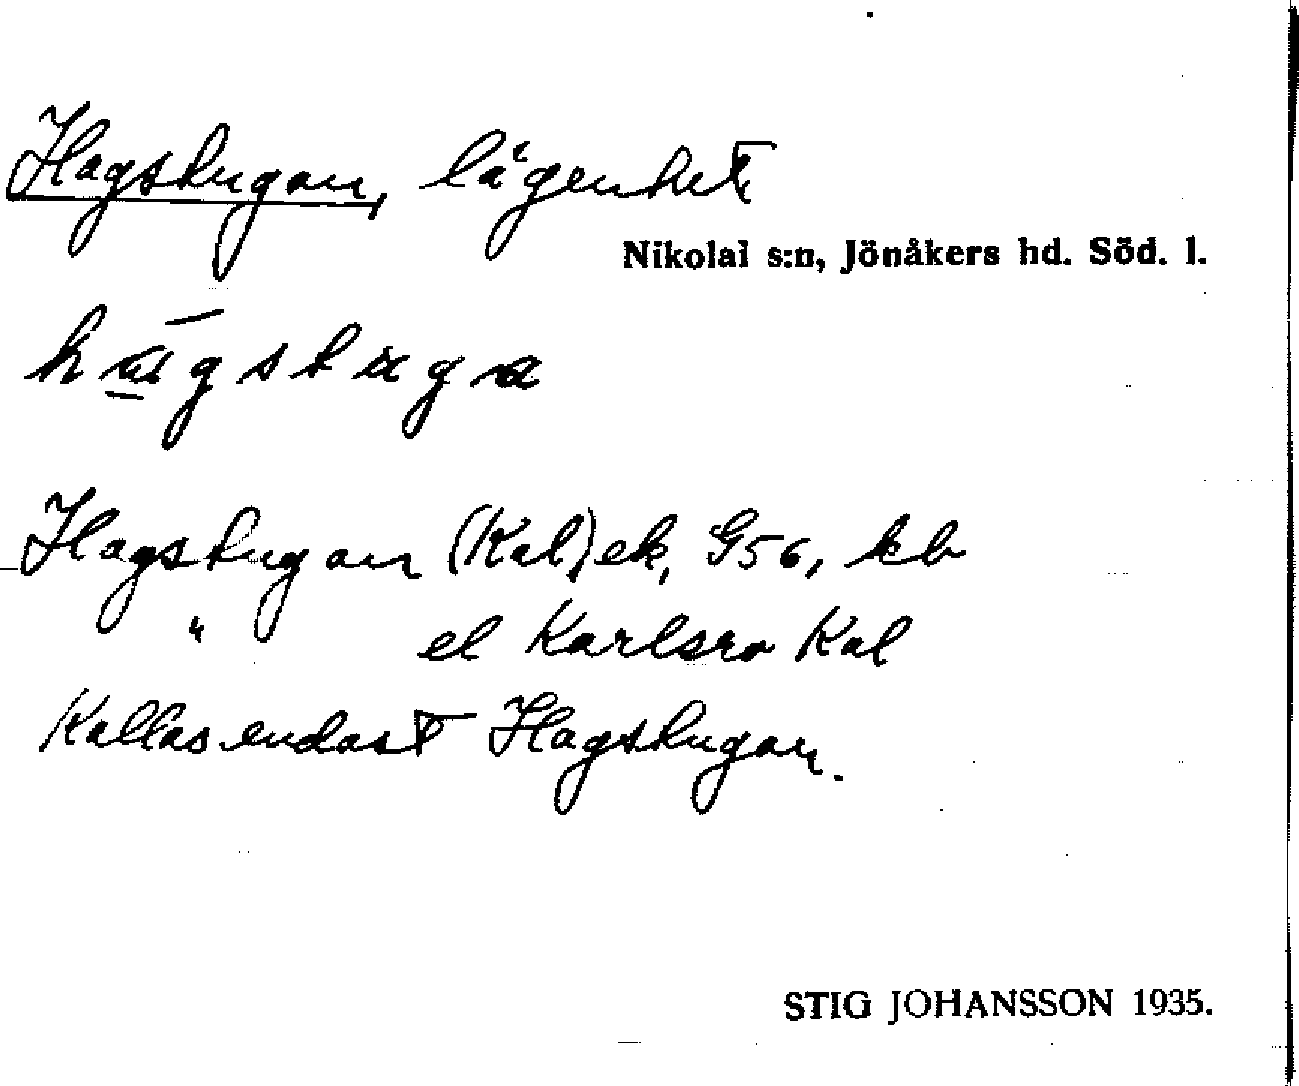 Hagstugan, lägenhet
Nikolai s:n, Jönåkers hd. Söd. l.
Hagstugan (Kal) ek, G56, kb
" el Karlsro Kal
Kallas endast Hagstugan.
STIG JOHANSSON 1935.